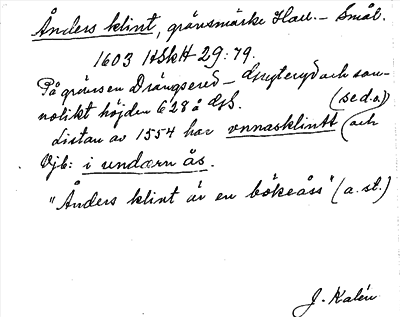 Ånders klint, gränsmärke Hall. – Smål.
1603 HSkH 29:79.
På gränsen Drängsered – Gryteryd och san-
nolikt höjden 628 å dsb. (se d.o.)
distan av 1554 har onnasklintt (och
Vjb: i undærn ås.
"Ånders klint är en bökeåss" (a. st.)
J. Kalén